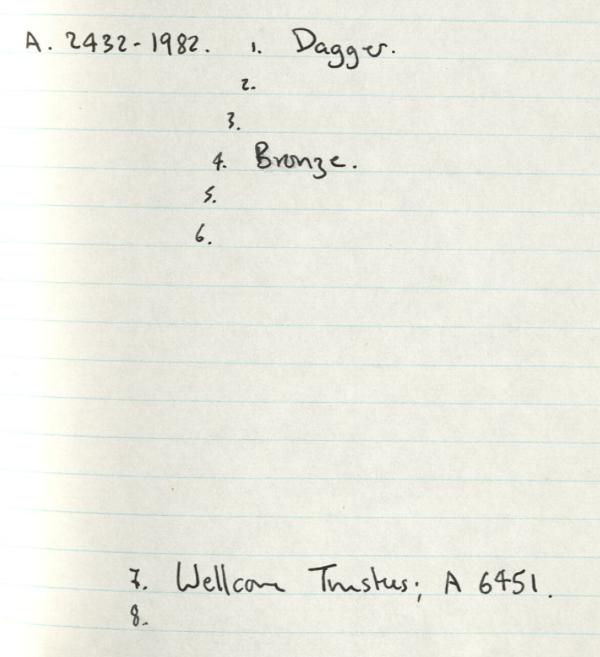 A. 2432-1982. 1. Dagger.
2.
3.
4. Bronze.
5.
6.
7. Wellcome Trustees; A 6451.
8.